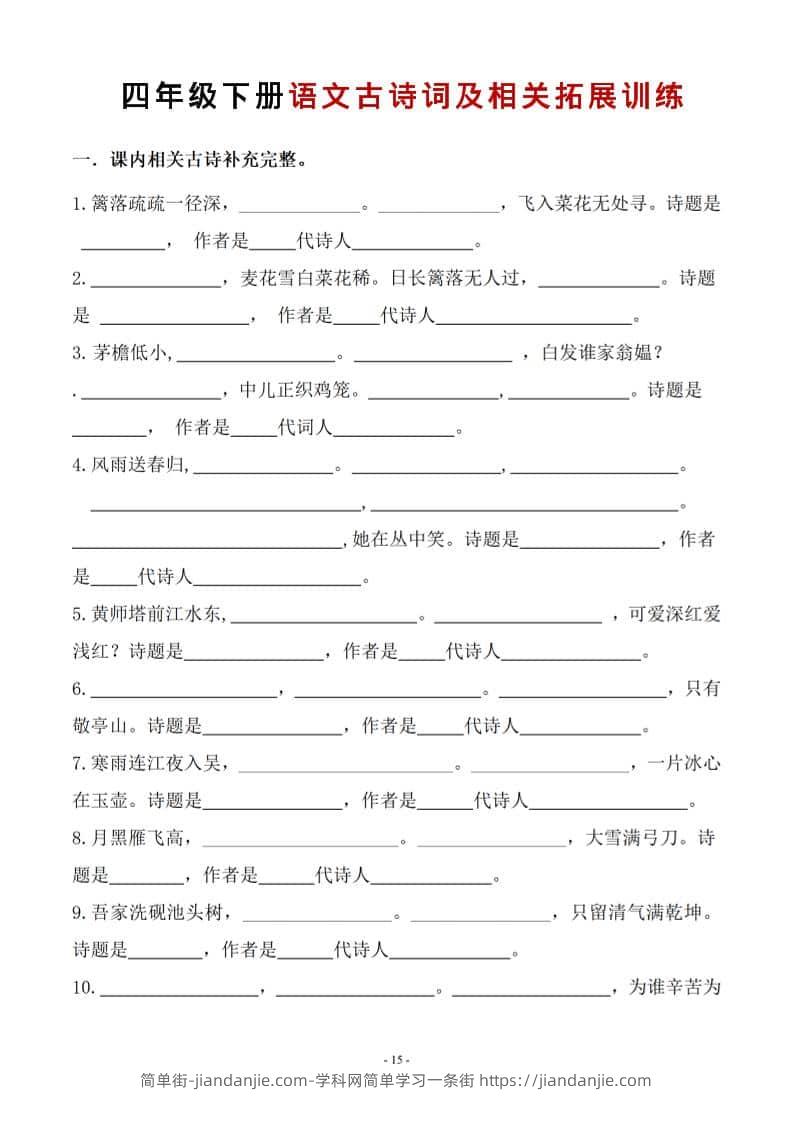 四年级下册语文古诗词及相关拓展训练
一．课内相关古诗补充完整。
1.篱落疏疏一径深，_____________。_____________，飞入菜花无处寻。诗题是
_________， 作者是_____代诗人_____________。
2.______________，麦花雪白菜花稀。日长篱落无人过，_____________。诗题
是 ________________， 作者是_____代诗人_____________________。
3.茅檐低小,_________________。_________________ ，白发谁家翁媪？
._______________，中儿正织鸡笼。______________,_____________。诗题是
________， 作者是_____代词人_____________。
4.风雨送春归,_______________。________________,__________________。
_____________________________,_________________________________。
_____________________________,她在丛中笑。诗题是_______________，作者
是_____代诗人__________________。
5.黄师塔前江水东,____________________。__________________ ，可爱深红爱
浅红？诗题是_______________，作者是_____代诗人_______________。
6.____________________，____________________。__________________，只有
敬亭山。诗题是_______________，作者是_____代诗人_____________。
7.寒雨连江夜入吴，_______________________。_________________，一片冰心
在玉壶。诗题是_______________，作者是______代诗人_________________。
8.月黑雁飞高，_____________________。________________，大雪满弓刀。诗
题是________，作者是______代诗人_____________。
9.吾家洗砚池头树，________________。_______________，只留清气满乾坤。
诗题是________，作者是______代诗人_____________。
10._________________，_________________。_________________，为谁辛苦为
- 15 -
简单街-jiandanjie.com-学科网简单学习一条街 https://jiandanjie.com